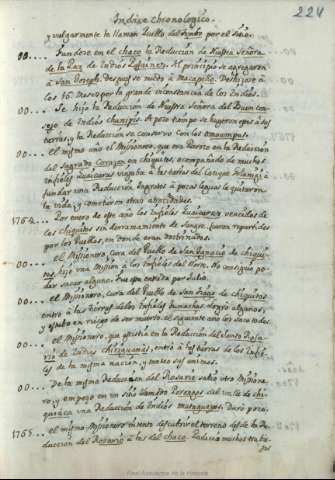 Indice Chronologico.
224
y vulgarmente la llaman Pueblo del por el Sitio.
00... Fundose en el chaco la Reducción de Nuestra Señora
de la Paz de Indios. Al principio se agregaron
a San Joseph. Despues se mudó a Macapillo. Deshizose a
los 16. Meses por la grande inconstancia de los Indios.
00... Se hizo la Reducción de Nuestra Señora del Buen con-
sejo de Indios chunipis. A poco tiempo se huyeron estos a sus
tierras, y la Reducción se conservó con los omoampas.
00... El mismo año el Missionero, que era Parroco en la Reducción
del Sagrado Corazon en chiquitos, acompañado de muchos
infieles Guaicuras viajaba a las tierras del Cazique para
fundar una Reducción. Ingratos a pocas leguas le quitaron
la vida, y cometieron otras atrocidades.
1764... Por enero de este año los Infieles Guaicuras vencidos de
los chiquitos sin derramamiento de sangre, fueron repartidos
por los Pueblos, en donde eran doctrinados.
00... El Missionero, Cura del Pueblo de San Ignacio de chiqui-
tos, hizo una Mission a los Infieles del Norte. No consiguio po-
der sacar alguno. Fue esta entrada por Julio.
00... El Missionero, Cura del Pueblo de San Tiago de chiquitos
entró a las tierras de los Infieles. algunos,
y estubo en riesgo de ser muerto. el siguiente año los sacó todos
00... el Missionero, que assistia en la Reducción del Santo Rosa-
rio de Indios chiriguanos, entró a las tierras de los Infie-
les de la misma nacion, y sin
00... De la misma Reduccion del Rosario salio otro Missione-
ro, y empezó en un sitio llamado Porongos del valle de chi-
quiaca una Reducción de Indios mataguayos. Duró poco.
1765... el mismo Missionero intentó descubrir el terreno desde la Re-
duccion del Rosario a las del chaco. Padecio muchos traba-
jos
Real Academia de la Historia